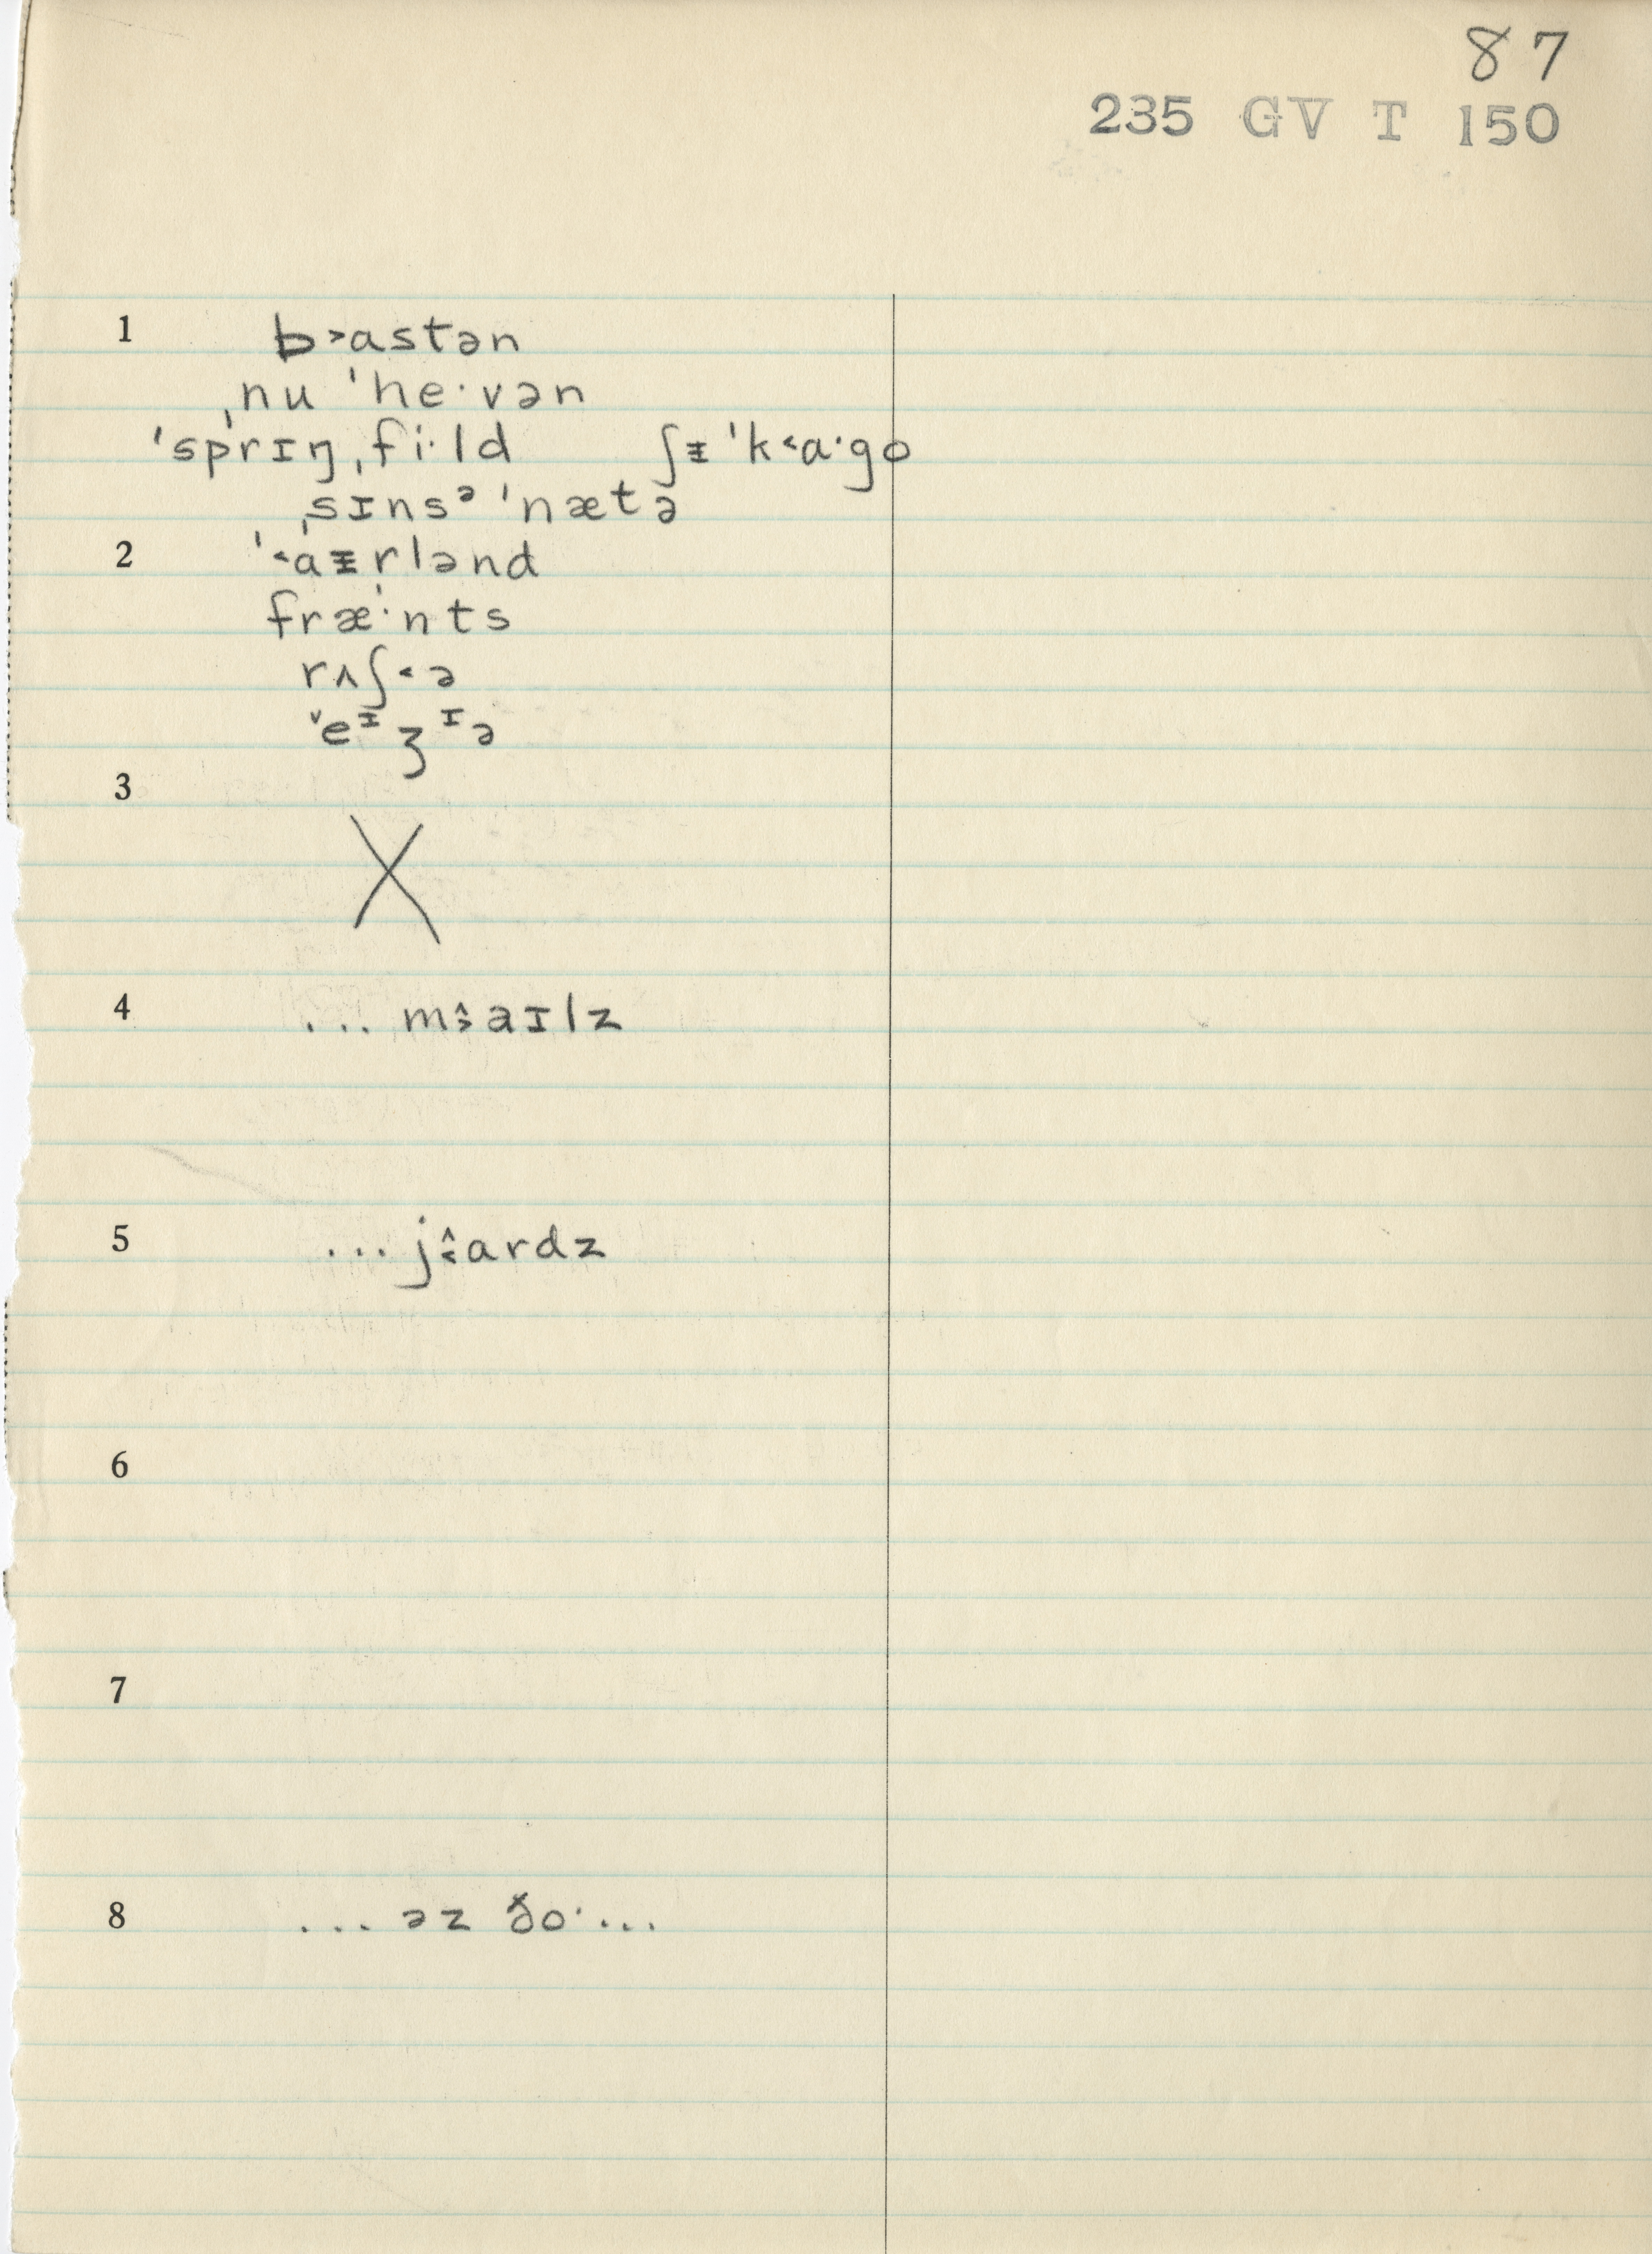 87
235 GV T 150
1 b˃astən
ˌnu ˈhe·vən
ˈsprɪŋˌfi·ld ʃɪ̵ ˈk˂a·go
ˌsɪnsᵊ ˈnætə
2 ˈ˂aɪ̵rlənd
fræ·nts
rʌʃ˂ə
ˇeᶧʒᶦə
3
X
4 ... m˄˃aɪlz
5 ... j˄˂ardz
6
7
8 ... əz ðo· ...